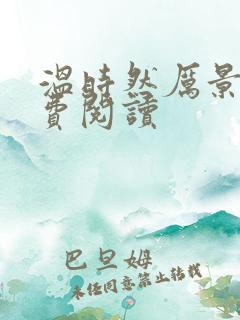 溫時然厲景
費閱讀
巴旦姆
未经同意禁止转载